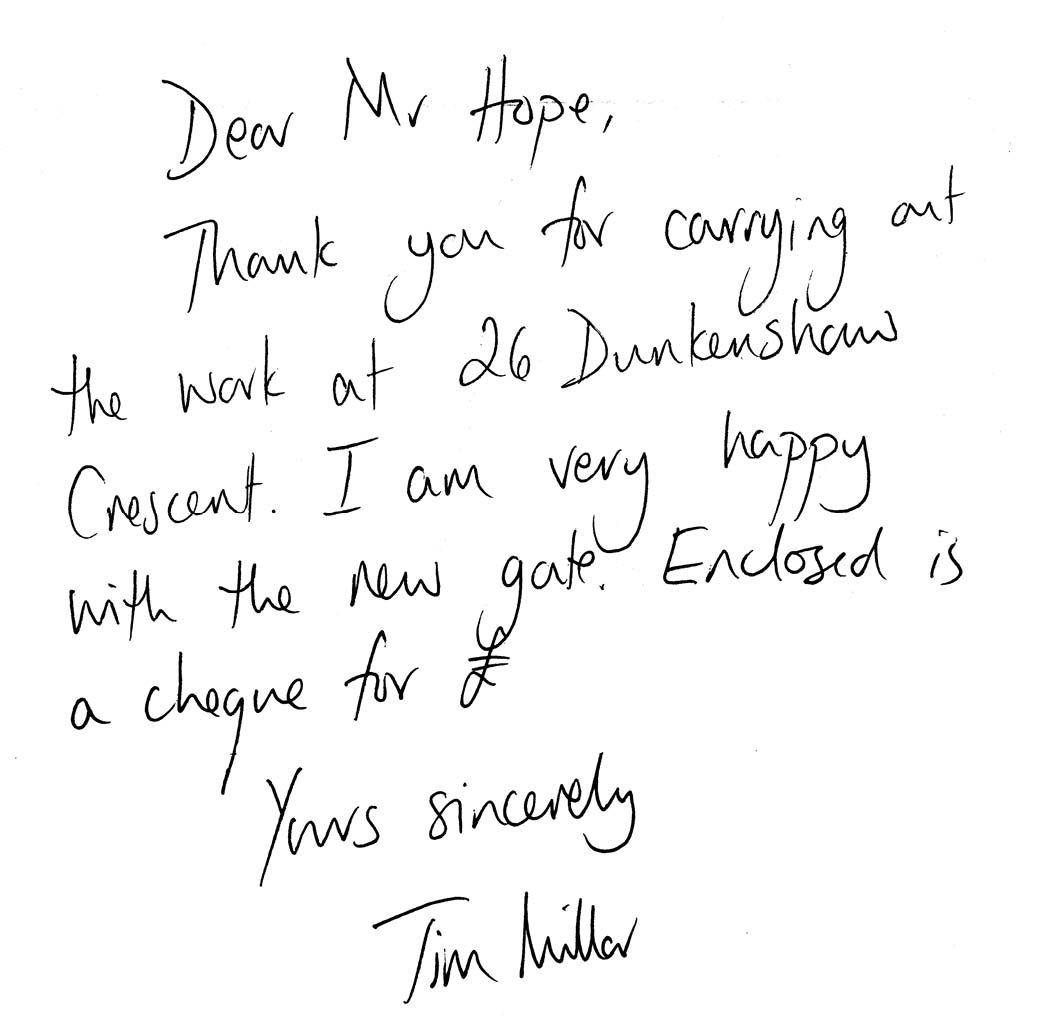 Dear Mr Hope,
Thank you for carrying out
the work at 26 Dunkenshaw
Crescent. I am very happy
with the new gate. Enclosed is
a cheque for £
Yours sincerely
Tim Millar